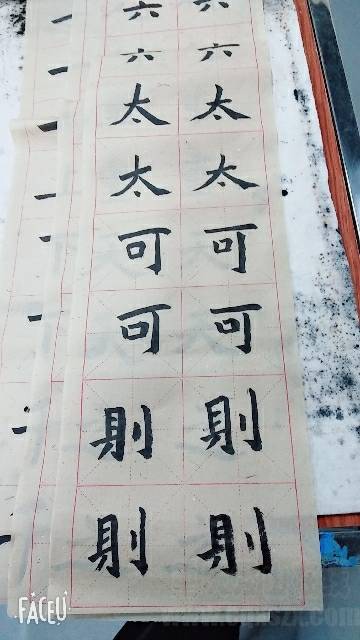 六 六
六 六
太 太
太 太
可 可
可 可
則 則
則 則
FACEU